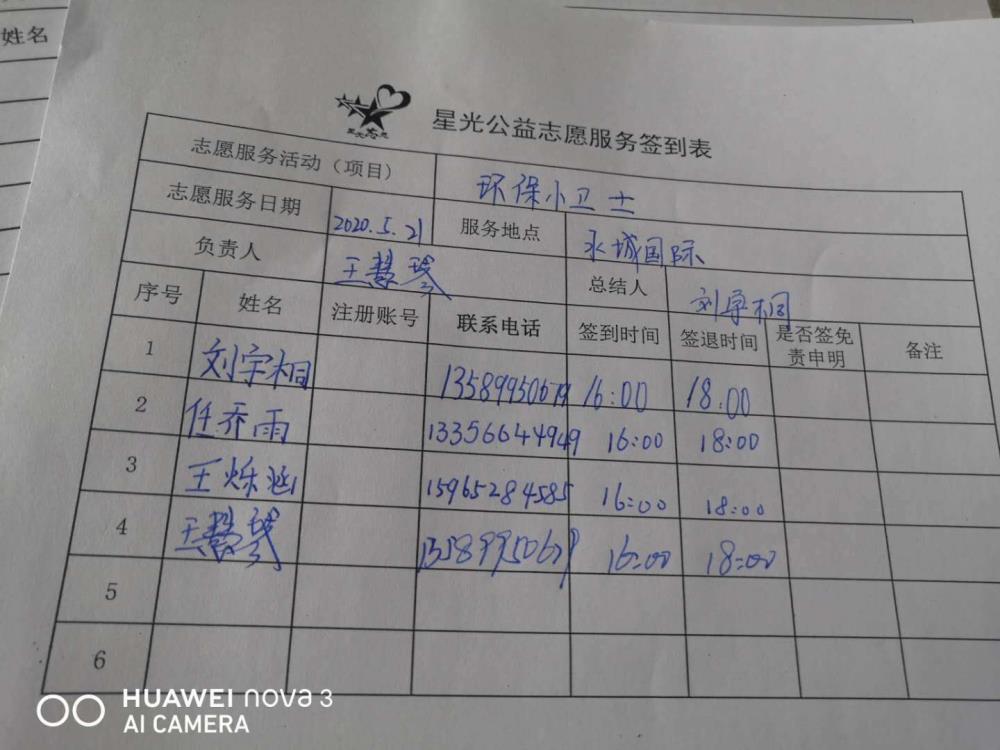 姓名
星光志愿
星光公益志愿服务签到表
志愿服务活动（项目） 环保小卫士
志愿服务日期 2020.5.21 服务地点 永城国际
负责人 王慧琴 总结人 刘宇桐
序号 姓名 注册账号 联系电话 签到时间 签退时间 是否签免责申明 备注
1 刘宇桐 13589950679 16:00 18:00
2 任乔雨 13356644949 16:00 18:00
3 王烁涵 15965284585 16:00 18:00
4 王慧琴 13589950679 16:00 18:00
5
6
HUAWEI nova 3
AI CAMERA